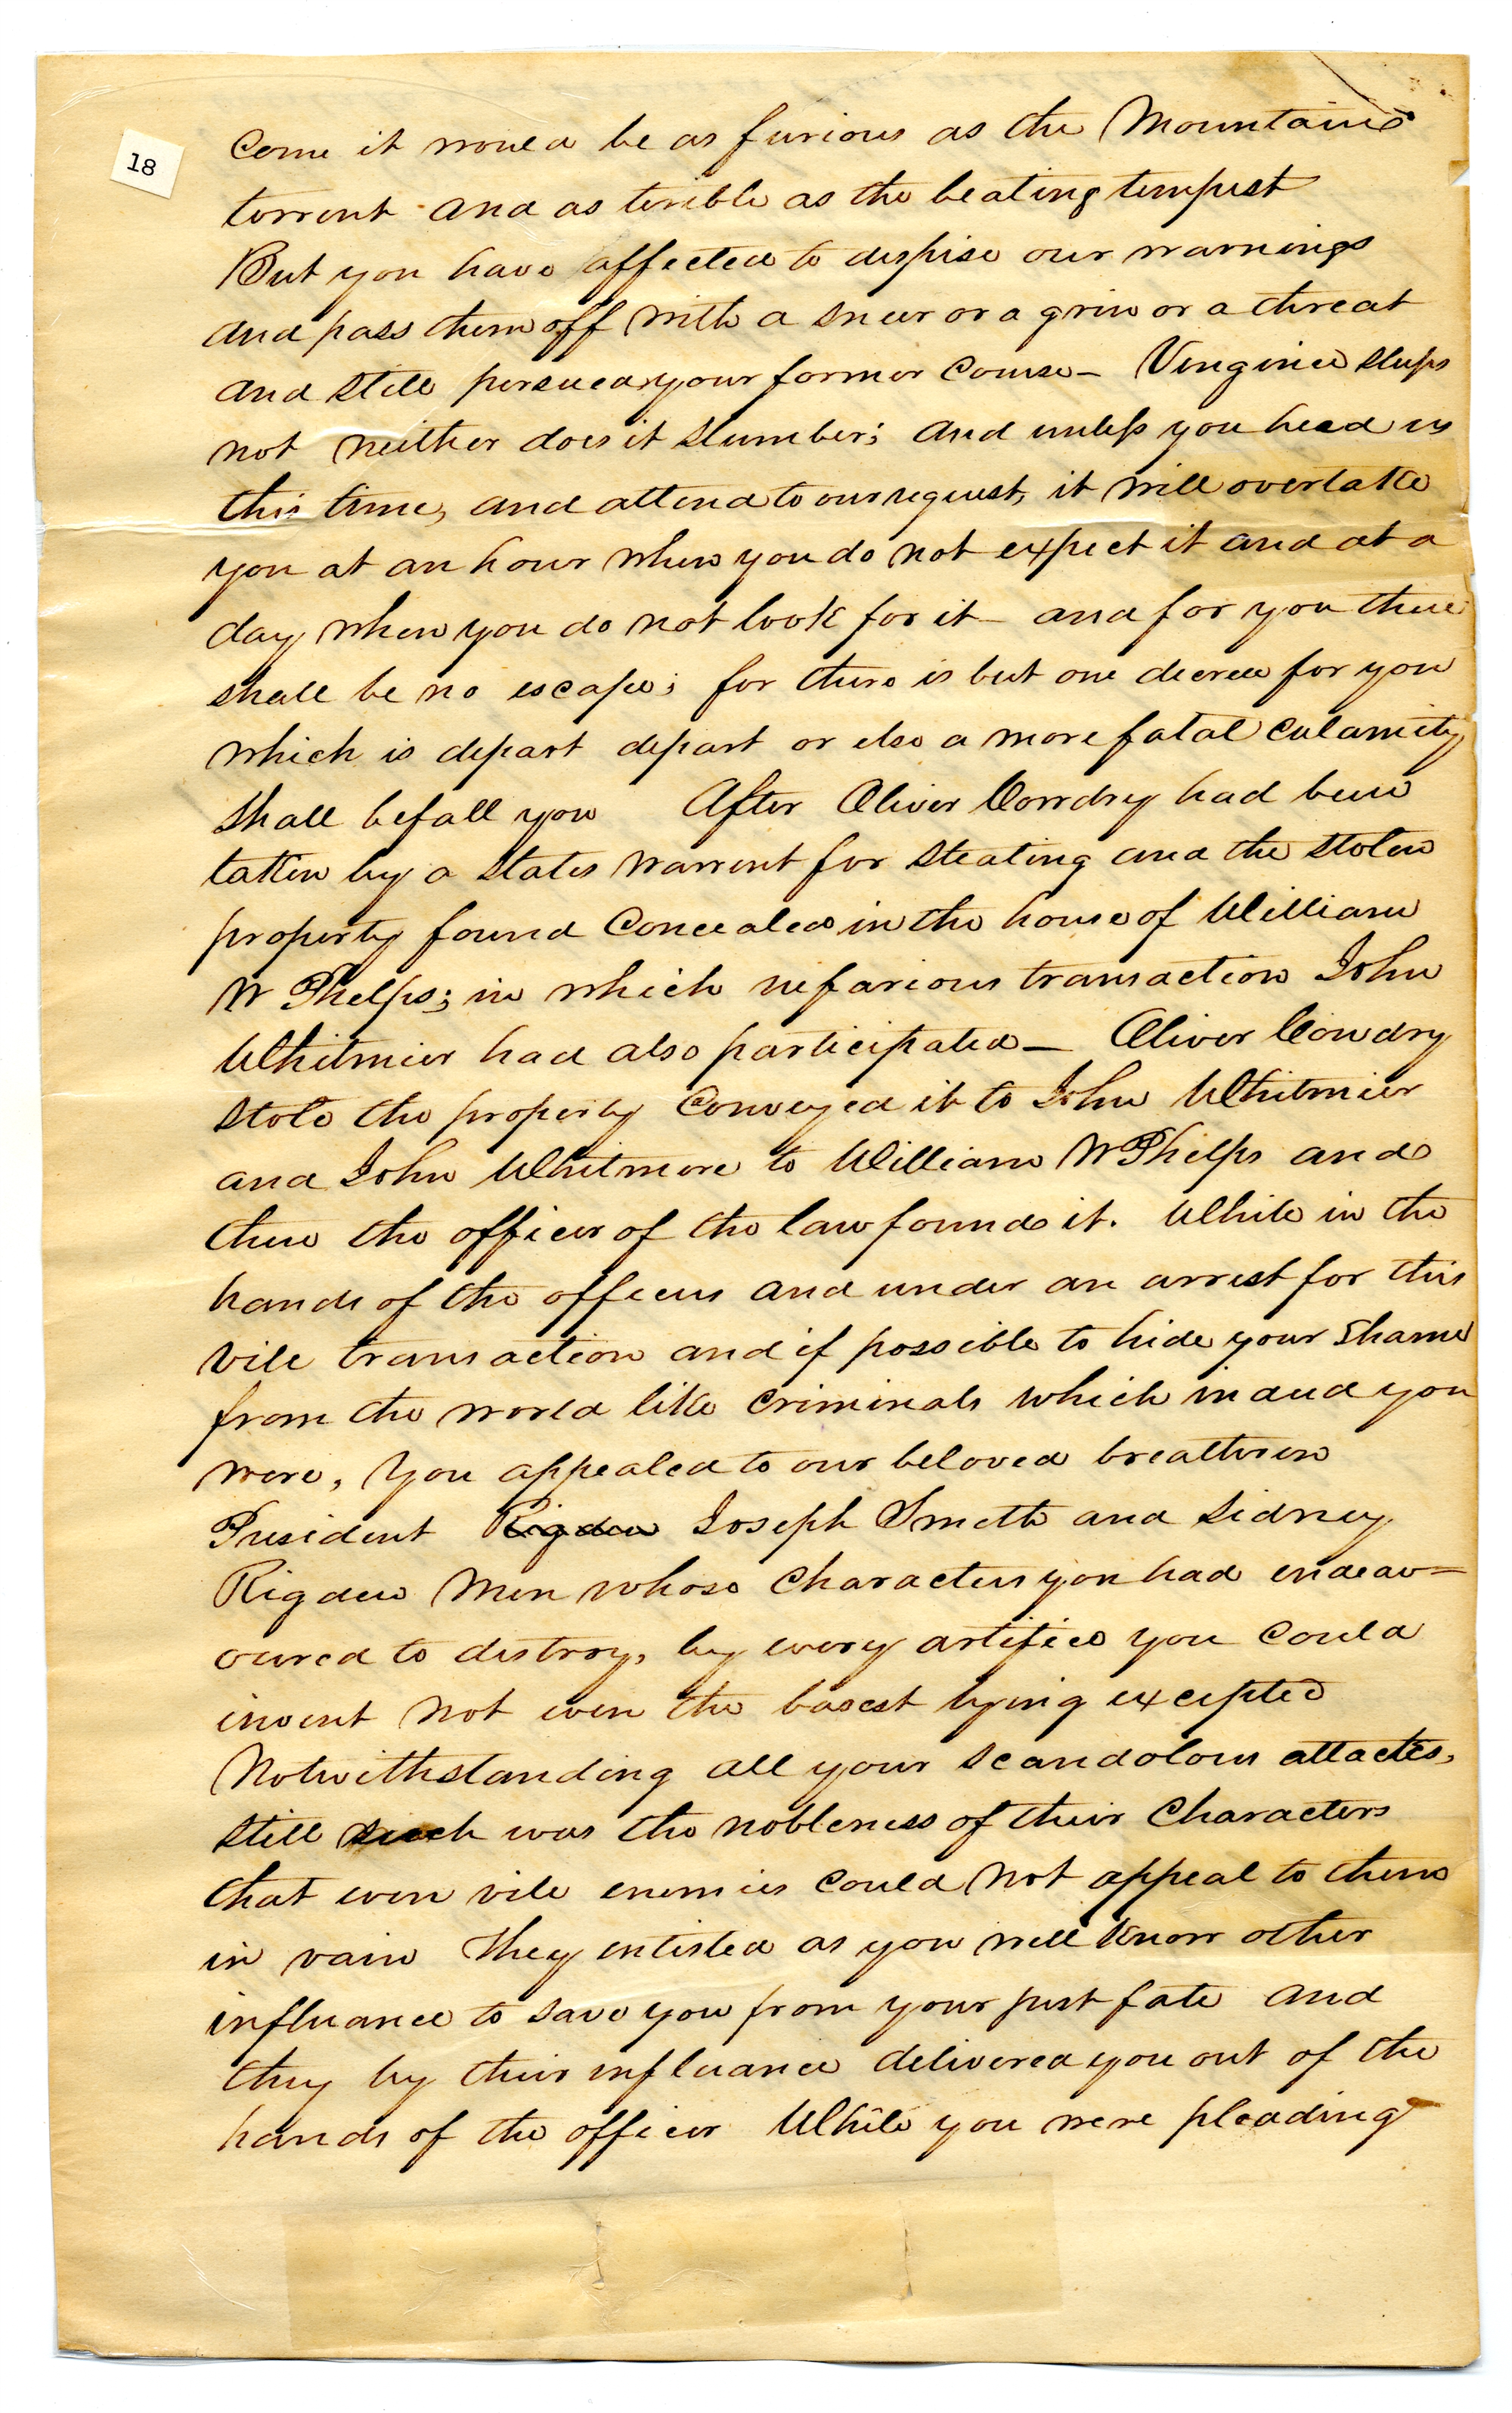 18
Come it would be as furious as the Mountains
torrent and as terible as the beating tempest
But you have affected to dispise our warnings
and pass them off with a sneer or a grin or a threat
and still persued your former Course – Vengince sleeps
not neither does it slumber; and unless you head us
this time, and attend to our request, it will overtake
you at an hour when you do not expect it and at a
day when you do not look for it – and for you there
shall be no escape; for there is but one decree for you
which is depart depart or else a more fatal calamity
shall befall you After Oliver Cowdry had been
taken by a States warrent for Stealing and the stolen
property found Concealed in the house of William
W Phelps; in which nefarious transaction John
Whitmier had also participated – Oliver Cowdry
stole the property Conveyed it to John Whitmier
and John Whitmore to William W Phelps and
there the officer of the law found it. While in the
hands of the officers and under an arrest for this
vile transaction and if possible to hide your shame
from the world like Criminals which indeed you
were, you appealed to our beloved breathren
President Rigdon Joseph Smith and Sidney
Rigden Men whose Characters you had endeav=
oured to distroy, by every artifice you could
invent not even the basest lying excepted
Notwithstanding all your scandolous attackes,
still such was the nobleness of their Characters
that even vile enemies could not appeal to them
in vain They enlisted as you well know other
influance to save you from your just fate and
they by their influance delivered you out of the
hands of the officer While you were pleading